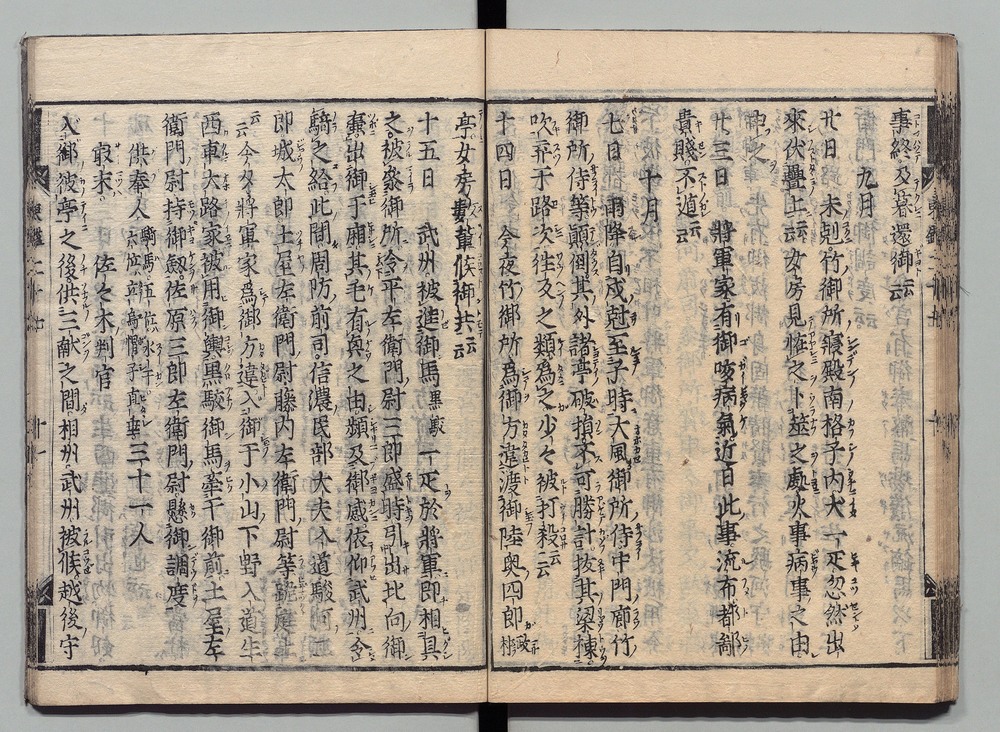 事終及暮還御云云
九月
廿日 未尅竹御所寢殿南格子内犬一疋忽然出
來伏疊上云云女房見恠之卜筮之處火事病事之由
申之
廿三日 將軍家有御咳病氣近日此事流布都鄙
貴賤不遁云云
十月
七日 雨降自戌尅至子時大風御所侍中門廊竹
御所侍等顛倒其外諸亭破損不可勝計抜其梁棟
吹弃于路次往反之類爲之少々被打殺云云
十四日 今夜竹御所爲御方違渡御陸奥四郎
亭女房輦候御共云云
十五日 武州被進御馬黒駮一疋於將軍即相具
之被參御所令平左衛門尉三郎盛時引出北向御
壷出御于廂其毛有興之由頻及御感依仰武州令
騎之給此間周防前司信濃民部大夫入道駿河
即城太郎土屋左衛門尉藤内左衛門尉等
云云今夕將軍家爲御方違入御于小山下野入道生
西車大路家被用御輿黒駮御馬牽于御前土屋左
衛門尉持御劔佐原三郎左衛門尉懸御調度
供奉人騎馬 立烏帽子直垂三十一人
冣末 佐々木判官
入御彼亭之後供三献之間相州武州被候越後守